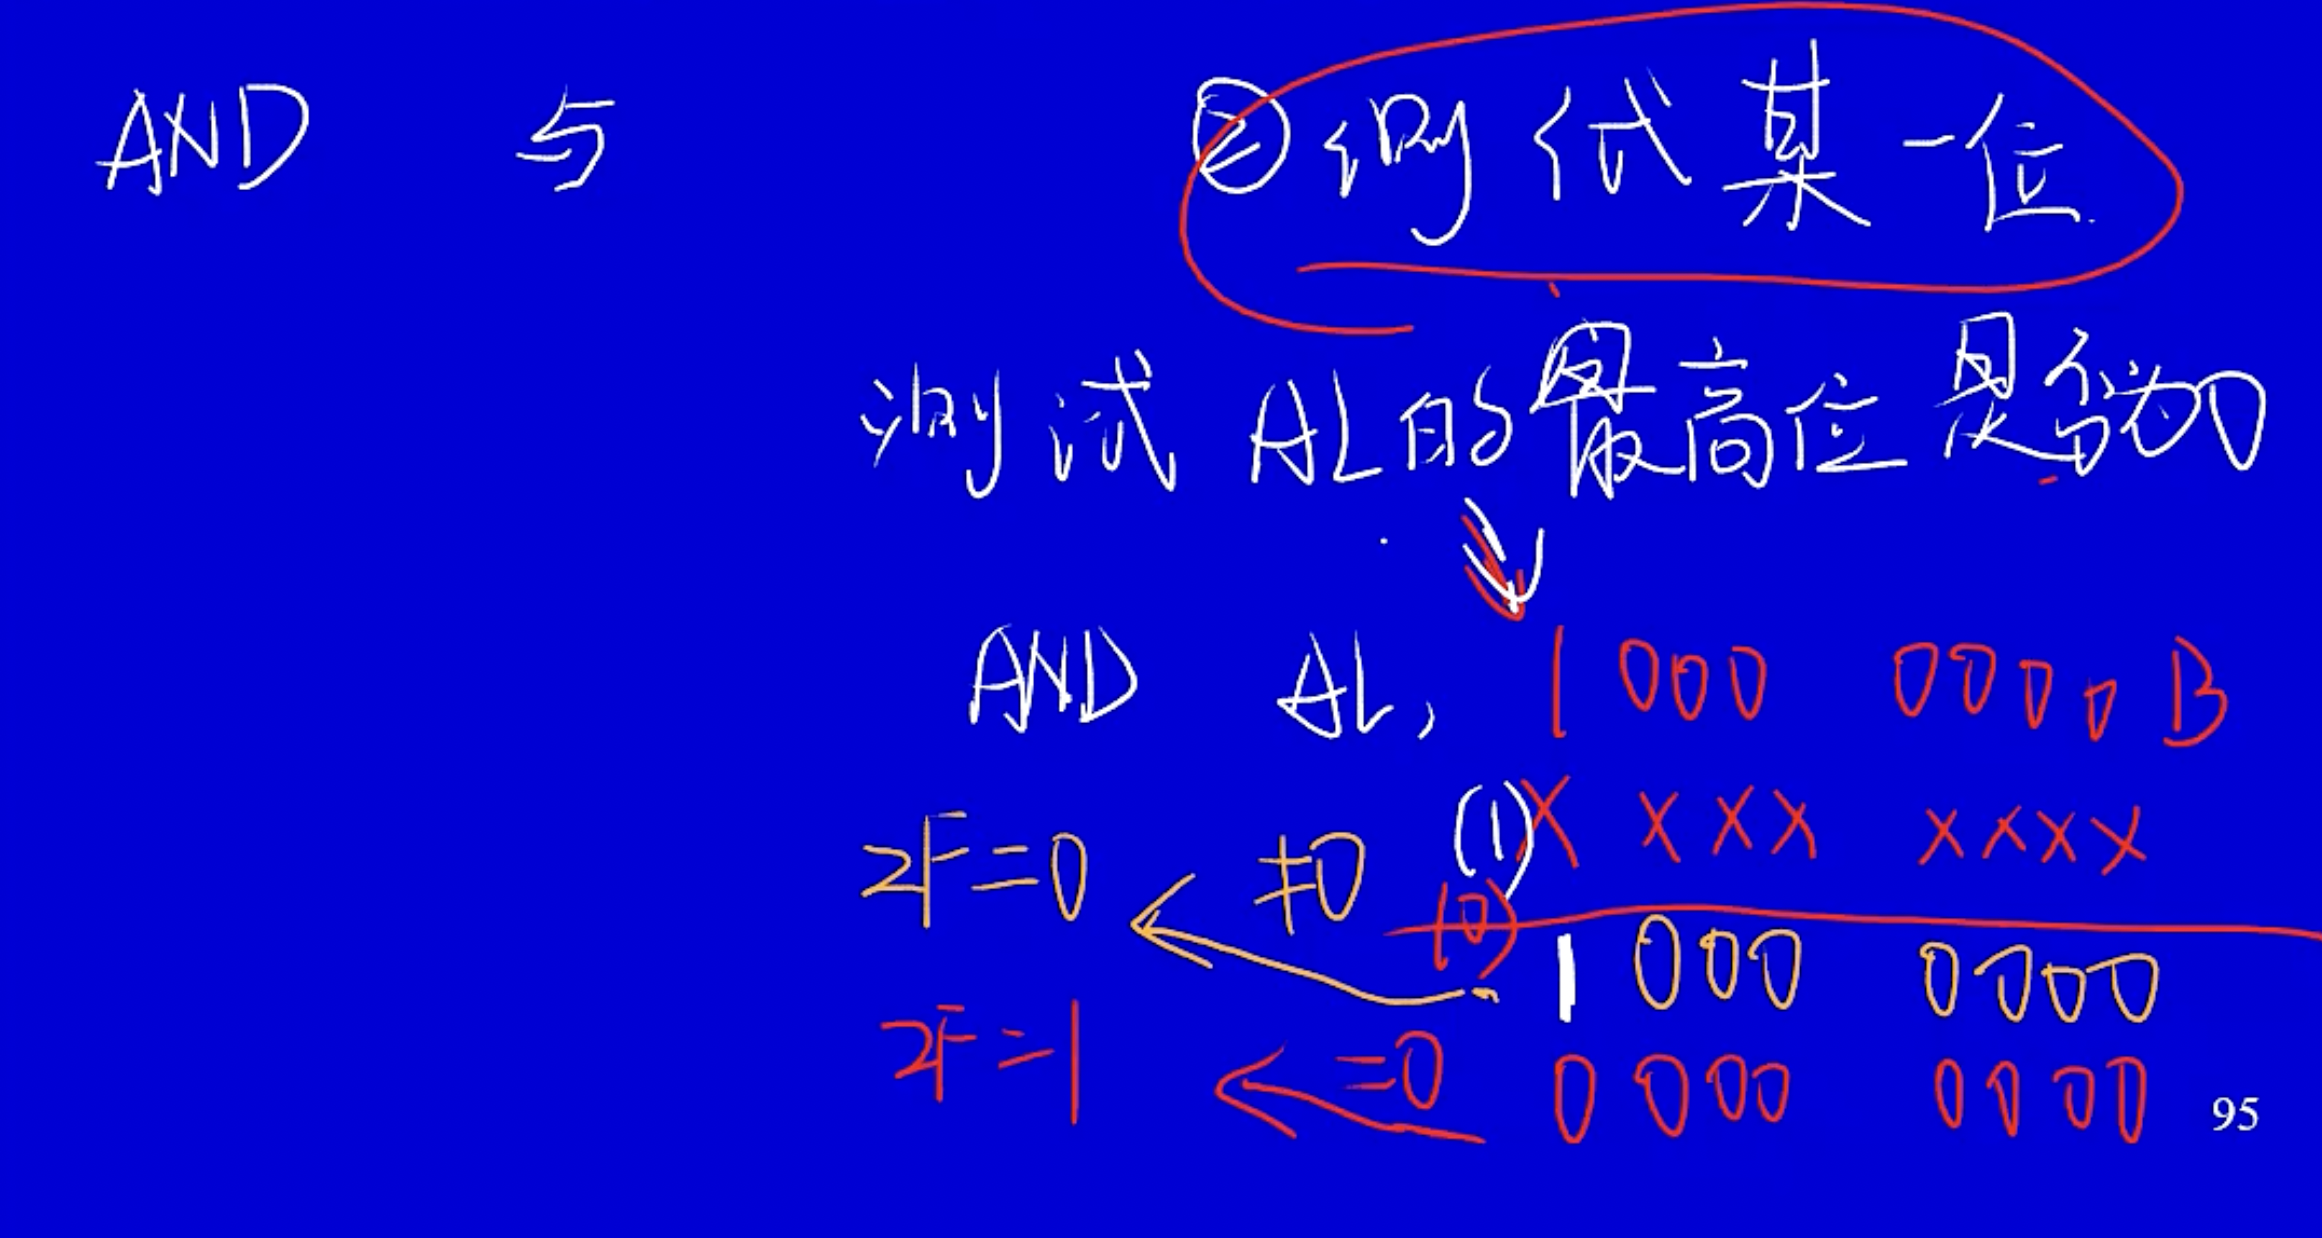 AND 与 ② 测试某一位
测试 AL的最高位是否为0
AND AL, 1000 0000B
(1)X XXX XXXX
ZF=0 ≠0 (0)
1 000 0000
ZF=1 =0 0000 0000
95